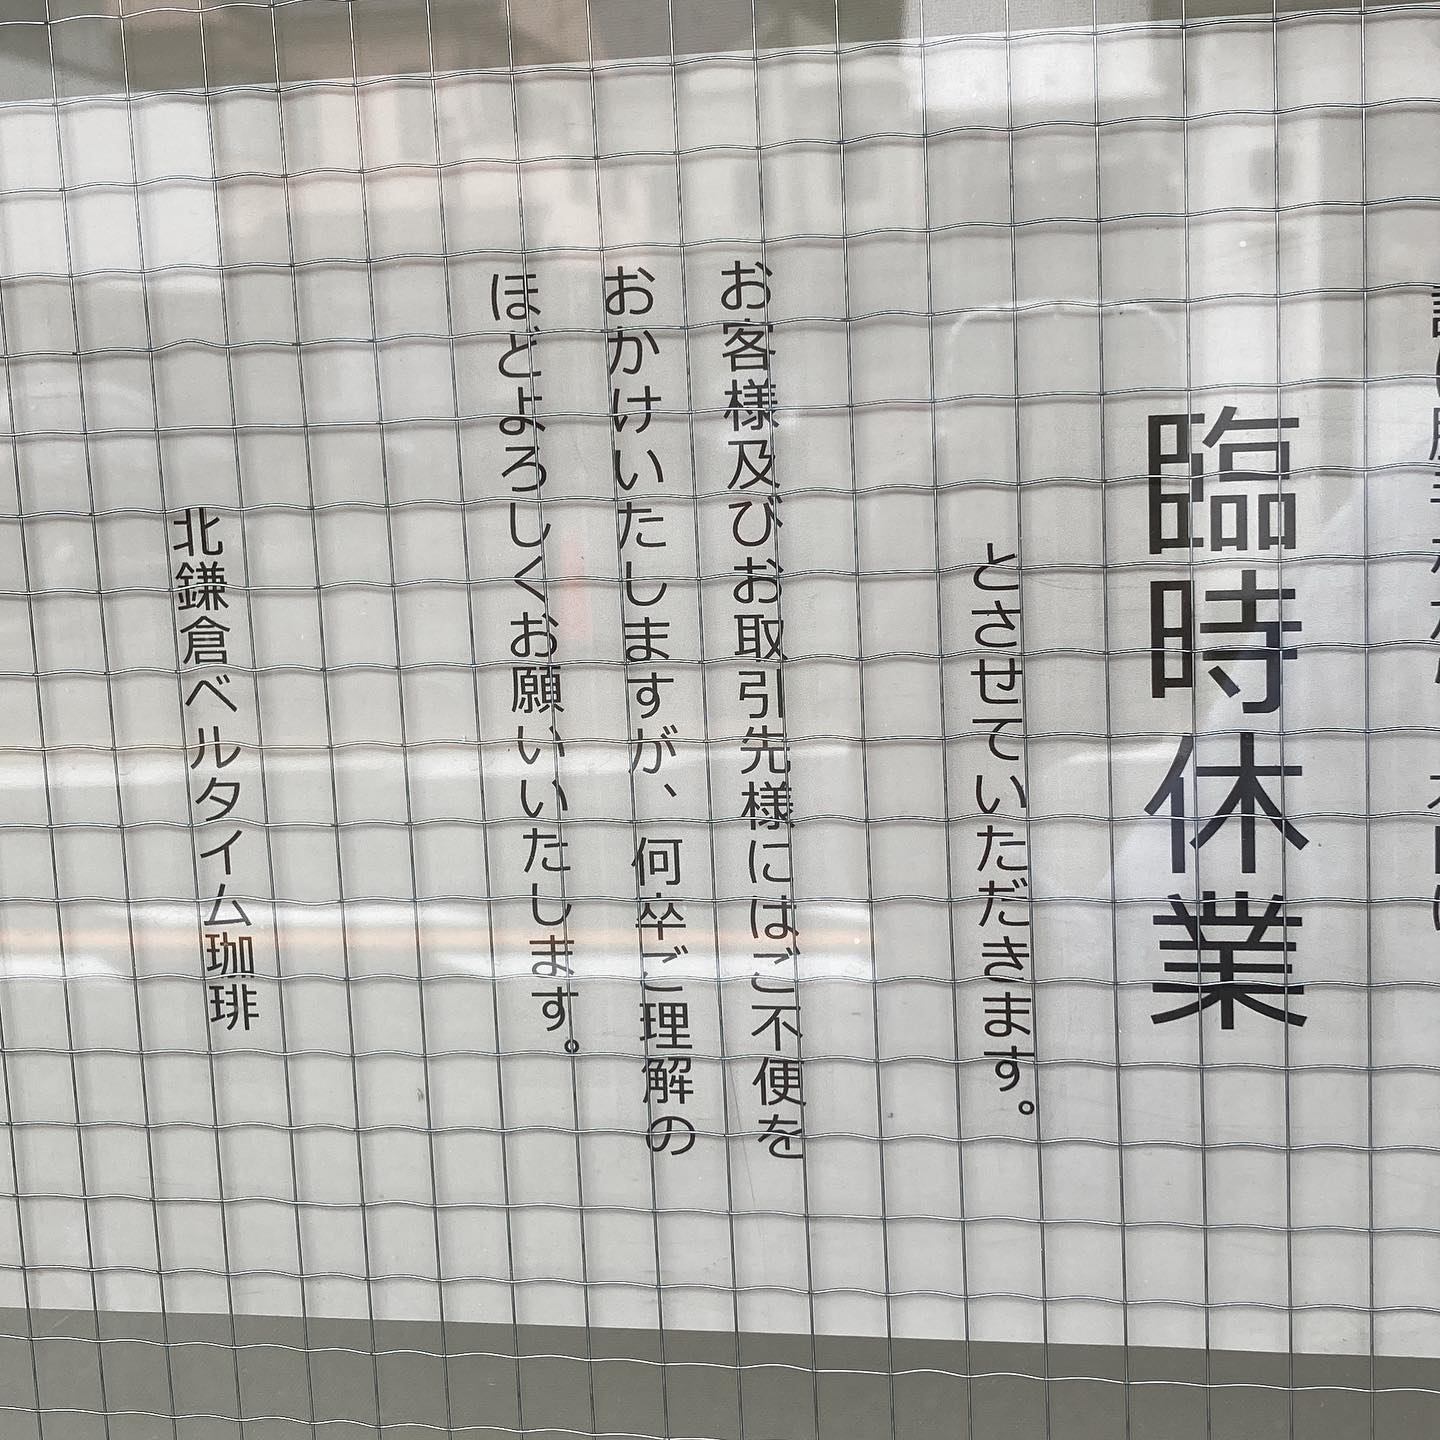 臨時休業
とさせていただきます。
お客様及びお取引先様にはご不便を
おかけいたしますが、何卒ご理解の
ほどよろしくお願いいたします。
北鎌倉ベルタイム珈琲